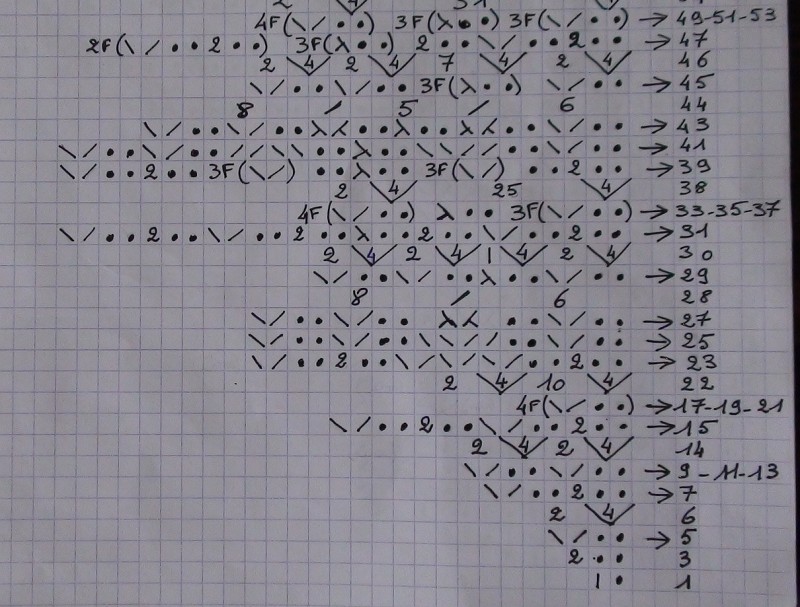 4F(\ / • •) 3F(λ • •) 3F(\ / • •) → 49-51-53
2F(\ / • • 2 • •) 3F(λ • •) 2 • • \ / • • 2 • • → 47
2 \4/ 2 \4/ 7 \4/ 2 \4/ 46
\ / • • \ / • • 3F(λ • •) \ / • • → 45
8 / 5 / 6 44
\ / • • \ / • • λ λ • • λ • • λ λ • • \ / • • → 43
\ / • • \ / • • / \ / \ / • • λ • • \ \ / / • • \ / • • → 41
\ / • • 2 • • 3F(\ /) • • λ • • 3F(\ /) • • 2 • • → 39
2 \4/ 25 \4/ 38
4F(\ / • •) λ • • 3F(\ / • •) → 33-35-37
\ / • • 2 • • \ / • • 2 • • λ • • 2 • • \ / • • 2 • • → 31
2 \4/ 2 \4/ 1 \4/ 2 \4/ 30
\ / • • \ / • • λ • • \ / • • → 29
8 / 6 28
\ / • • \ / • • λ λ • • \ / • • → 27
\ / • • \ / • • \ / \ / \ / • • \ / • • → 25
\ / • • 2 • • \ / \ / \ / • • 2 • • → 23
2 \4/ 10 \4/ 22
4F(\ / • •) → 17-19-21
\ / • • 2 • • \ / • • 2 • • → 15
2 \4/ 2 \4/ 14
\ / • • \ / • • → 9-11-13
\ / • • 2 • • → 7
2 \4/ 6
\ / • • → 5
2 • • 3
1 • 1